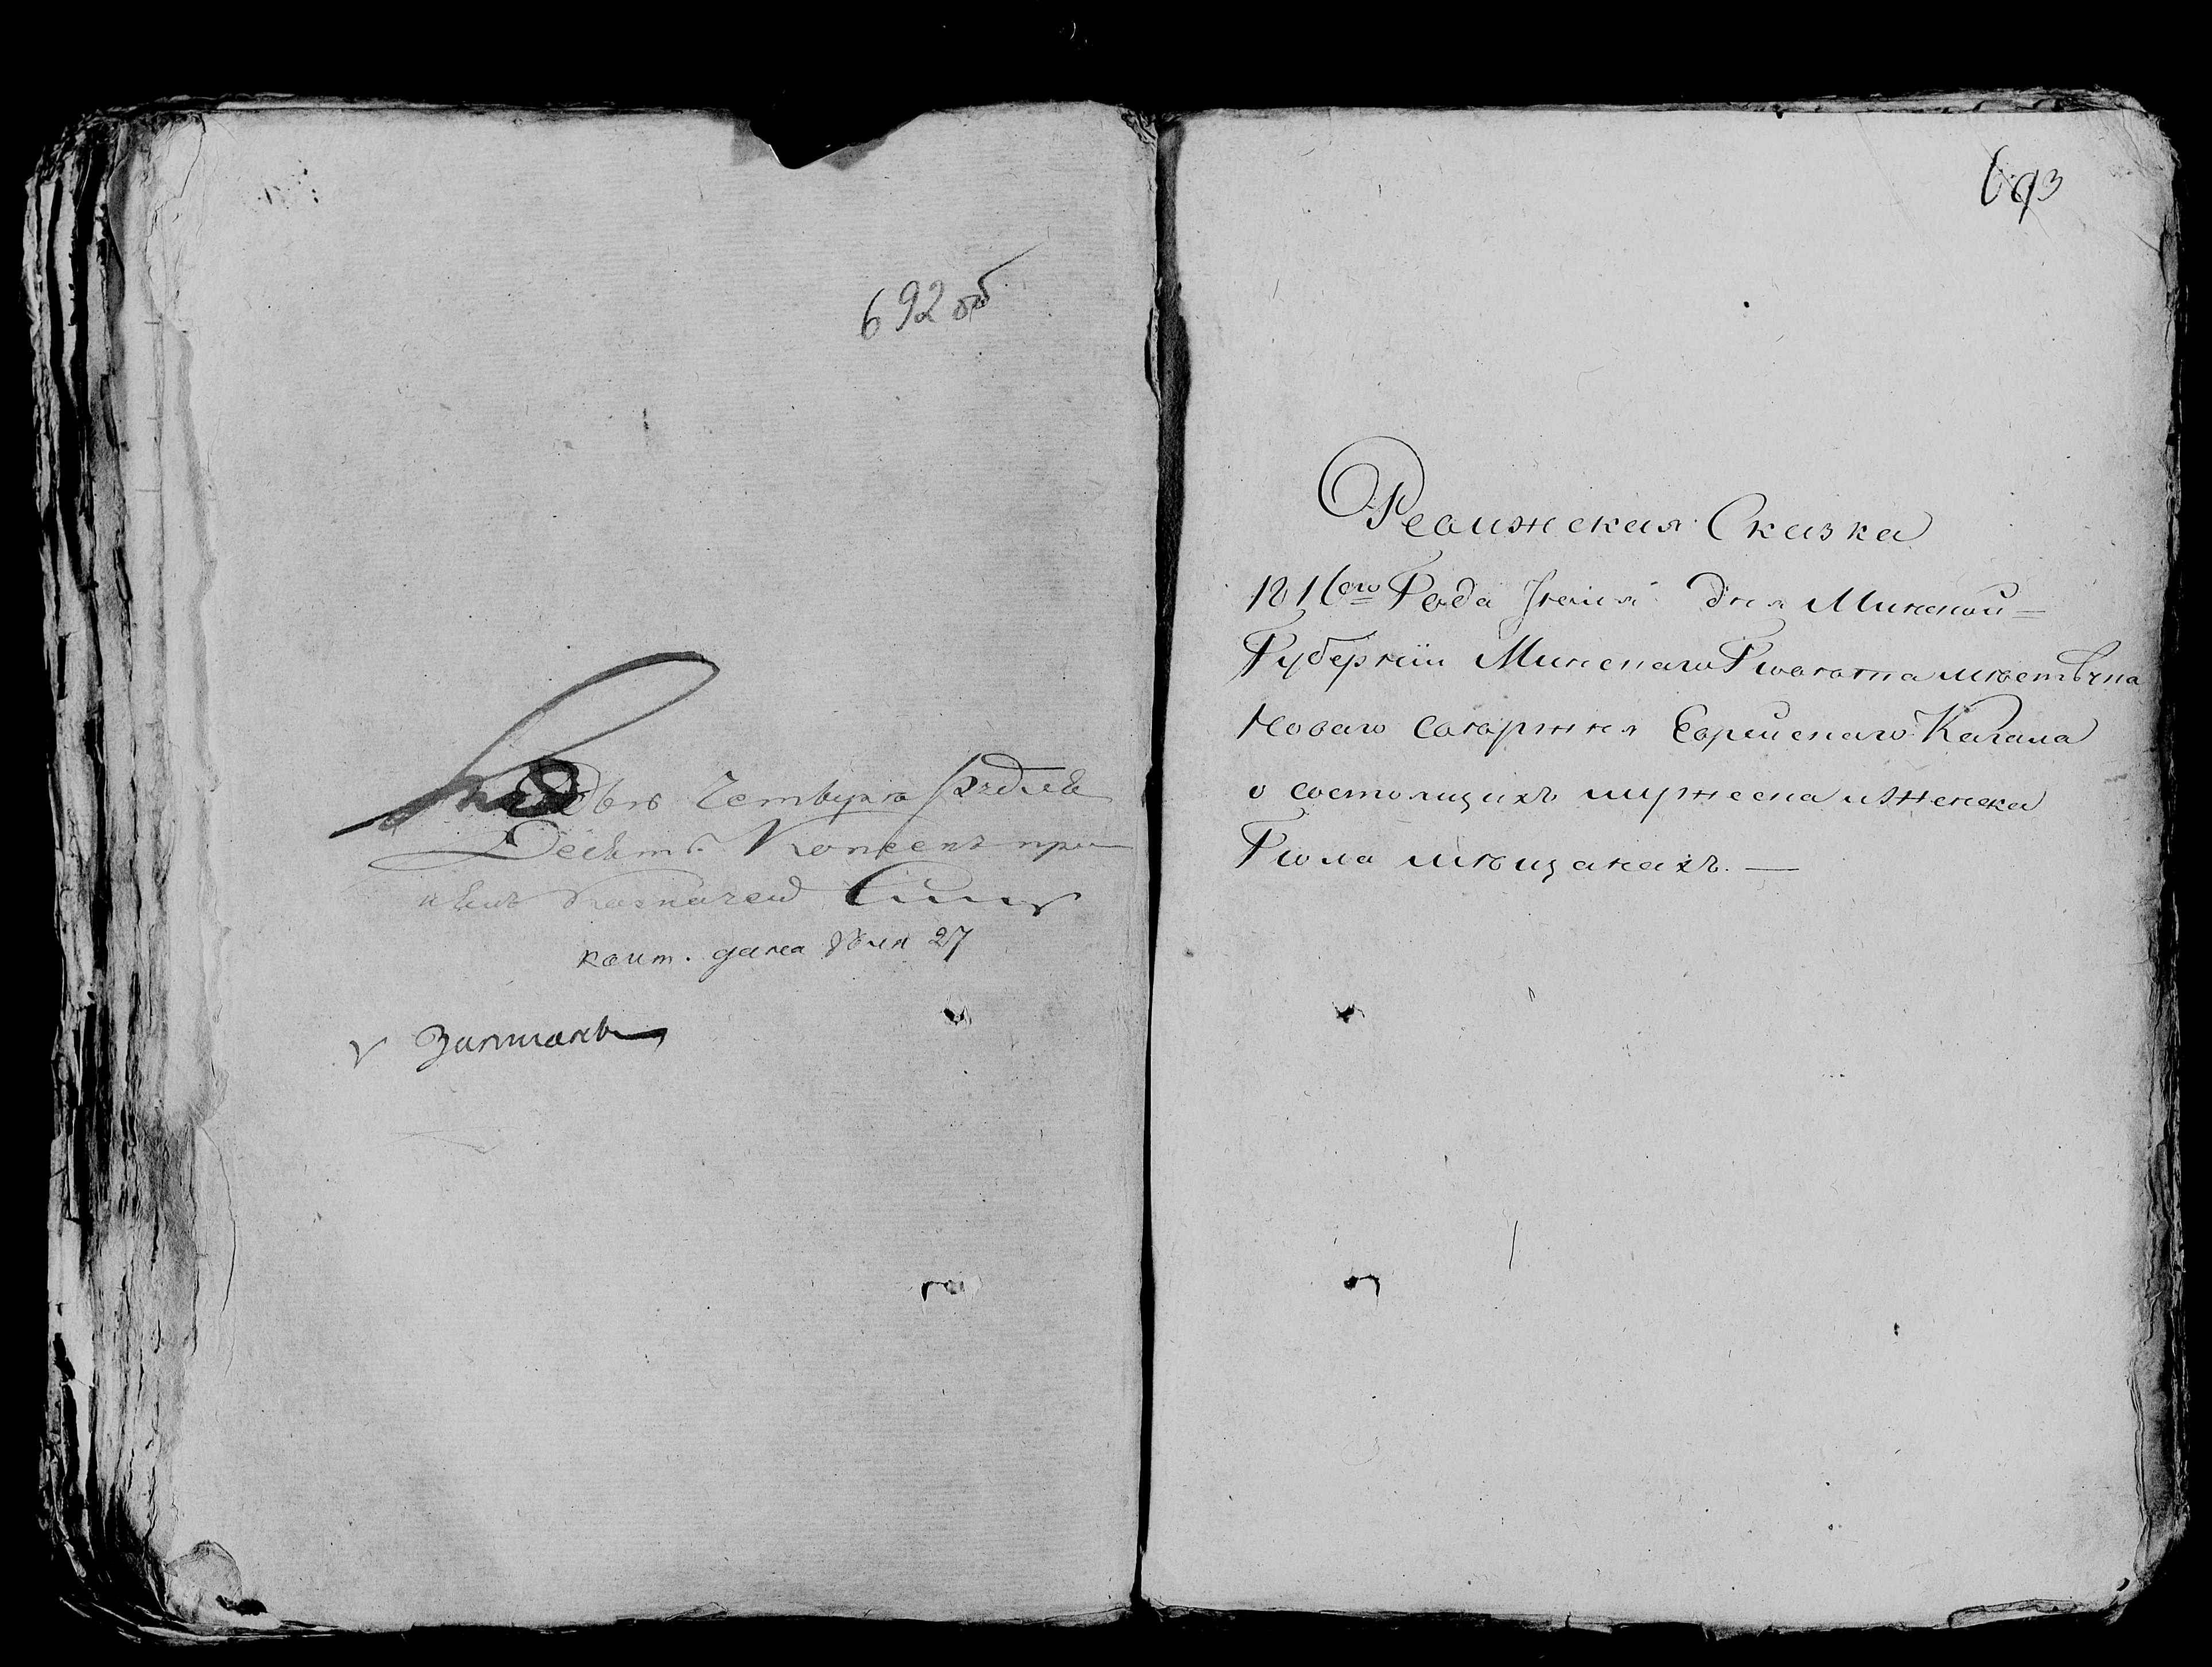 692 об
Две Четверта рубле
Десять Копеекъ при
нялъ Казначей
квит. дана 27
Записать
693
Ревижская Сказка
1816го Года Iюня дня Минской
Губернiи Минскаго Повѣта мѣстѣчка
Новаго свержня Еврейскаго Кагала
о состоящихъ мужеска и Женска
Пола мѣщанахъ. —